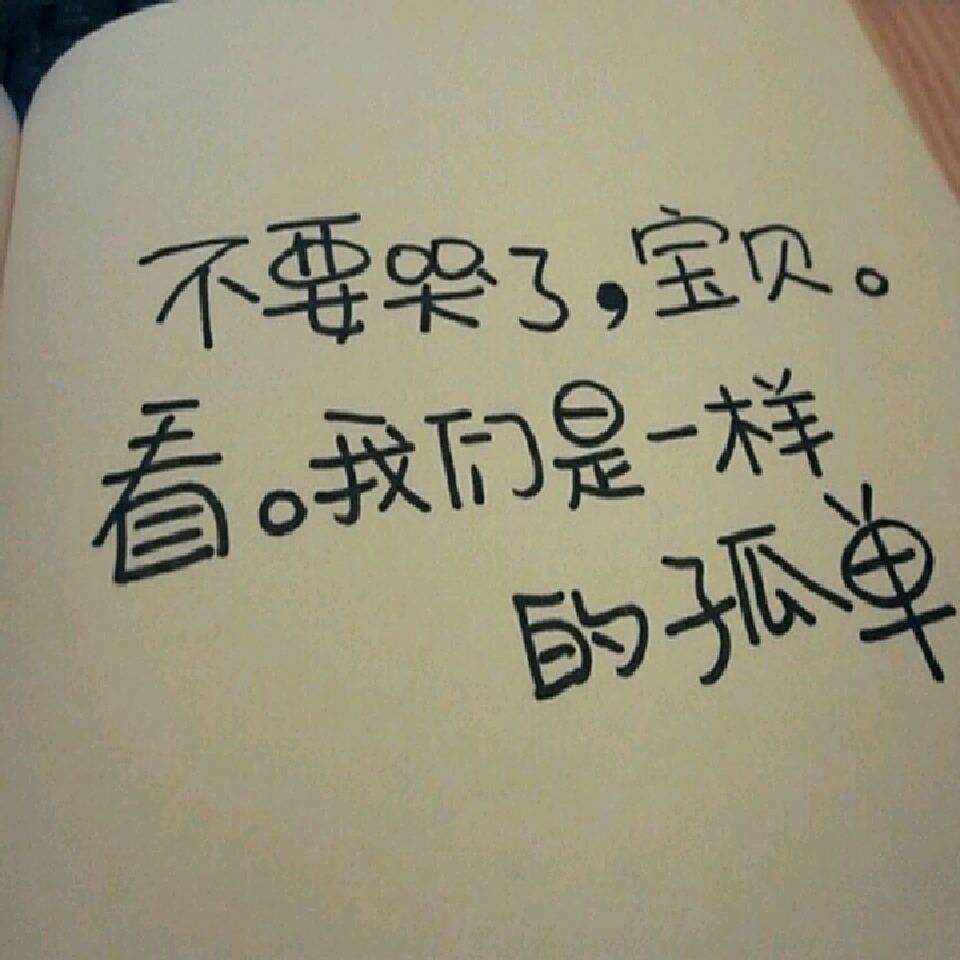 不要哭了,宝贝。
看。我们是一样
的孤单